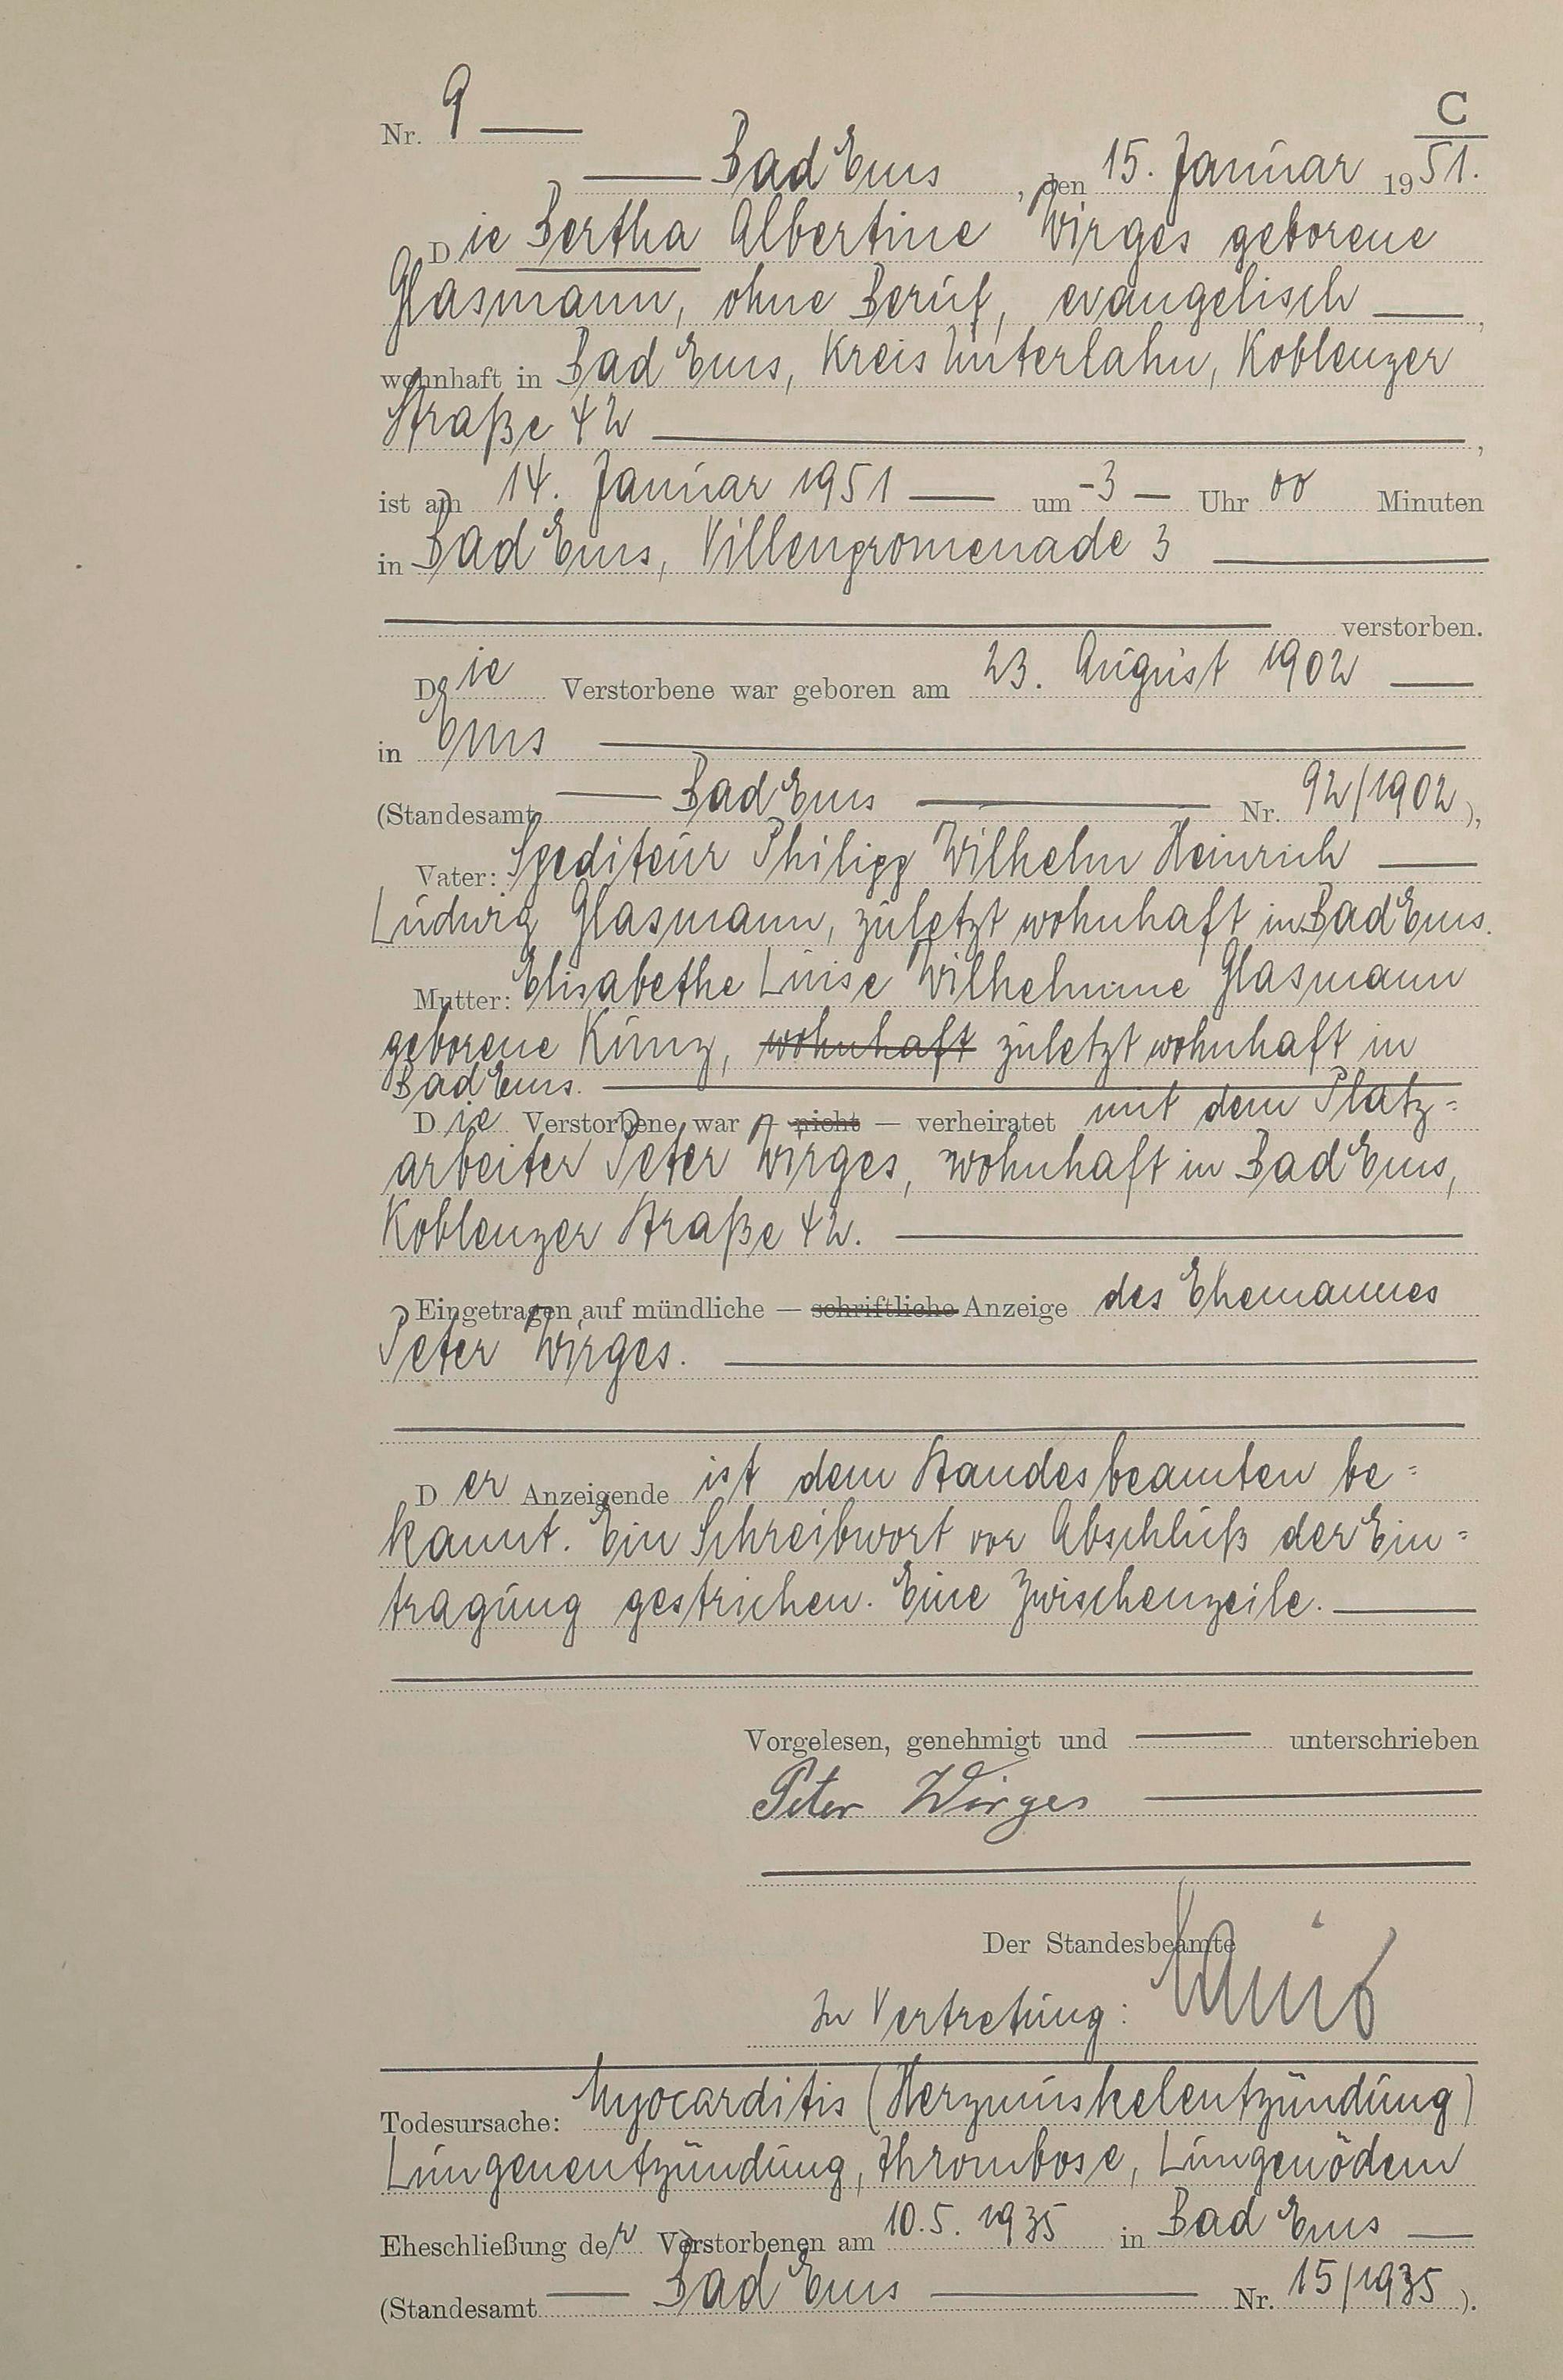 C
Nr. 9
Bad Ems, den 15. Januar 1951.
Die Bertha Albertine Wirges geborene
Glasmann, ohne Beruf, evangelisch ,
wohnhaft in Bad Ems, Kreis Unterlahn, Koblenzer
Straße 42 ,
ist am 14. Januar 1951 um -3- Uhr 00 Minuten
in Bad Ems, Villenpromenade 3
verstorben.
Die Verstorbene war geboren am 23. August 1902
in Ems
(Standesamt Bad Ems Nr. 92/1902),
Vater: Spediteur Philipp Wilhelm Heinrich
Ludwig Glasmann, zuletzt wohnhaft in Bad Ems.
Mutter: Elisabethe Luise Wilhelmine Glasmann
geborene Kunz, wohnhaft zuletzt wohnhaft in
Bad Ems.
Die Verstorbene war — nicht — verheiratet mit dem Platz=
arbeiter Peter Wirges, wohnhaft in Bad Ems,
Koblenzer Straße 42.
Eingetragen auf mündliche — schriftliche Anzeige des Ehemannes
Peter Wirges.
Der Anzeigende ist dem Standesbeamten be=
kannt. Ein Schreibwort vor Abschluß der Ein=
tragung gestrichen. Eine Zwischenzeile.
Vorgelesen, genehmigt und unterschrieben
Peter Wirges
Der Standesbeamte
In Vertretung:
Todesursache: Myocarditis (Herzmuskelentzündung)
Lungenentzündung, Thrombose, Lungenödem
Eheschließung der Verstorbenen am 10.5.1935 in Bad Ems
(Standesamt Bad Ems Nr. 15/1935).